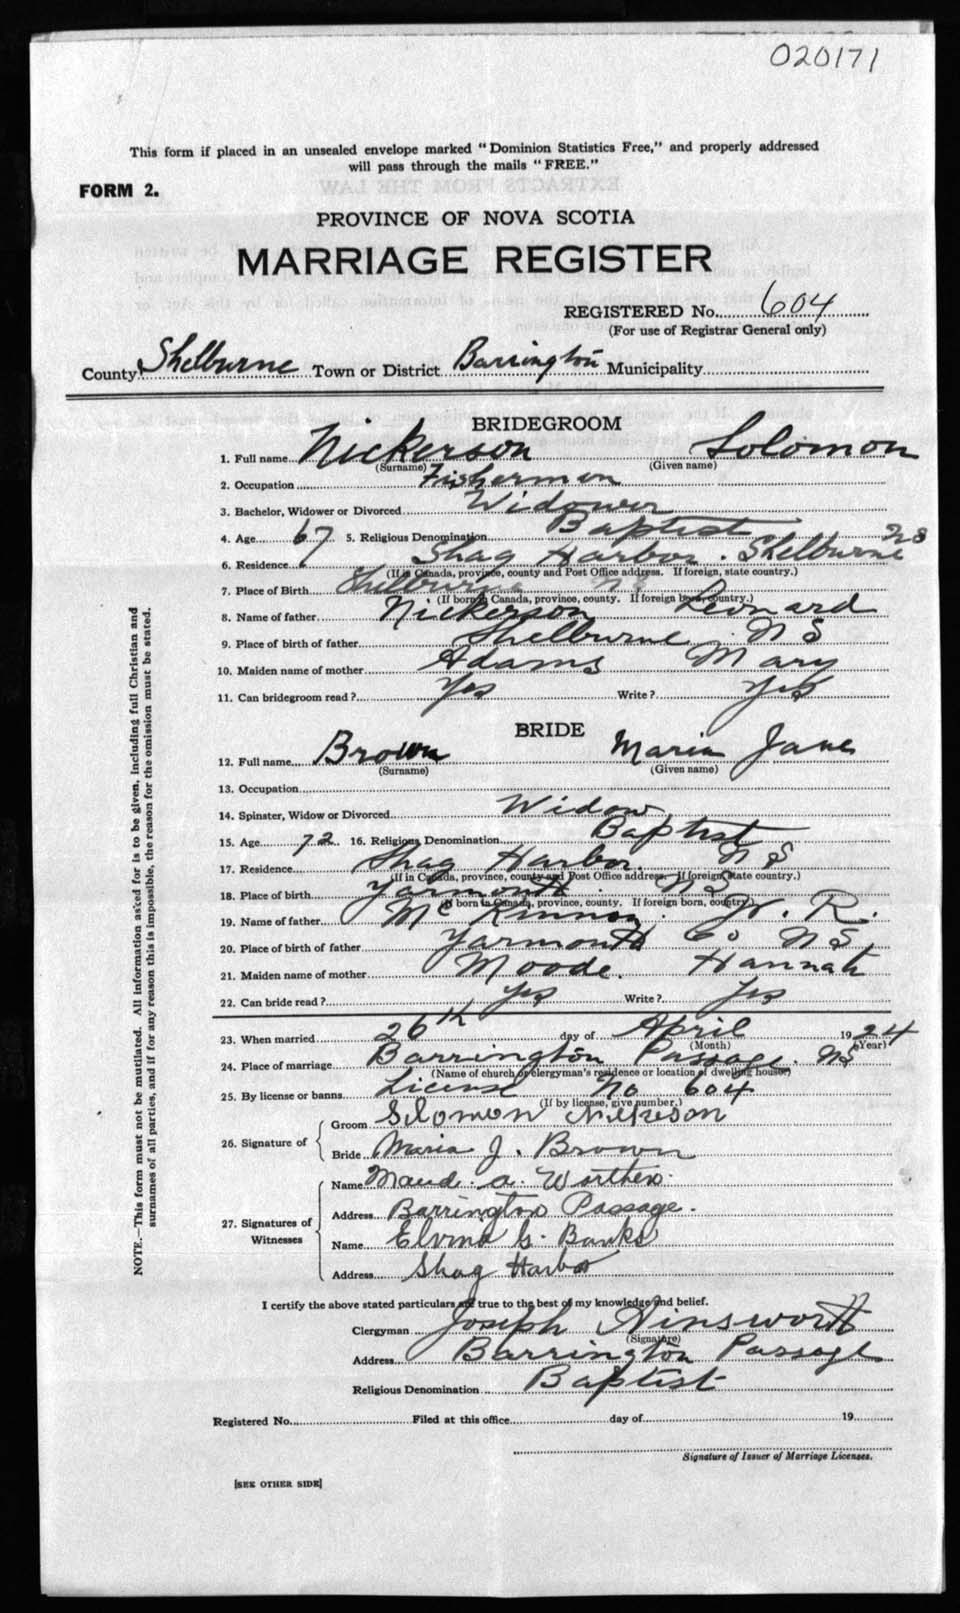 020171
This form if placed in an unsealed envelope marked "Dominion Statistics Free," and properly addressed
will pass through the mails "FREE."
FORM 2.
PROVINCE OF NOVA SCOTIA
MARRIAGE REGISTER
REGISTERED No. 604
(For use of Registrar General only)
County Shelburne Town or District Barrington Municipality
BRIDEGROOM
1. Full name Nickerson Solomon
(Surname) (Given name)
2. Occupation Fisherman
3. Bachelor, Widower or Divorced Widower
4. Age 67 5. Religious Denomination Baptist
6. Residence Shag Harbor. Shelburne NS
(If in Canada, province, county and Post Office address. If foreign, state country.)
7. Place of Birth Shelburne NS
(If born in Canada, province, county. If foreign born, country.)
8. Name of father Nickerson Leonard
9. Place of birth of father Shelburne NS
10. Maiden name of mother Adams Mary
11. Can bridegroom read? Yes Write? Yes
BRIDE
12. Full name Brown Maria Jane
(Surname) (Given name)
13. Occupation
14. Spinster, Widow or Divorced Widow
15. Age 72 16. Religious Denomination Baptist
17. Residence Shag Harbor. NS
(If in Canada, province, county and Post Office address. If foreign, state country.)
18. Place of birth Yarmouth. NS
(If born in Canada, province, county. If foreign born, country)
19. Name of father McKinnon. W. R.
20. Place of birth of father Yarmouth Co NS
21. Maiden name of mother Moode. Hannah
22. Can bride read? Yes Write? Yes
23. When married 26th day of April 1924
(Month) (Year)
24. Place of marriage Barrington Passage. NS
(Name of church or clergyman's residence or location of dwelling house)
25. By license or banns License No 604
(If by license, give number.)
Groom Solomon Nickerson
26. Signature of
Bride Maria J. Brown
Name Maud. A. Worthen
Address Barrington Passage.
27. Signatures of
Witnesses
Name Elvina G. Banks
Address Shag Harbor
I certify the above stated particulars are true to the best of my knowledge and belief.
Clergyman Joseph Ainsworth
(Signature)
Address Barrington Passage
Religious Denomination Baptist
Registered No. Filed at this office day of 19
Signature of Issuer of Marriage Licenses.
[SEE OTHER SIDE]
NOTE.—This form must not be mutilated. All information asked for is to be given, including full Christian and
surnames of all parties, and if for any reason this is impossible, the reason for the omission must be stated.